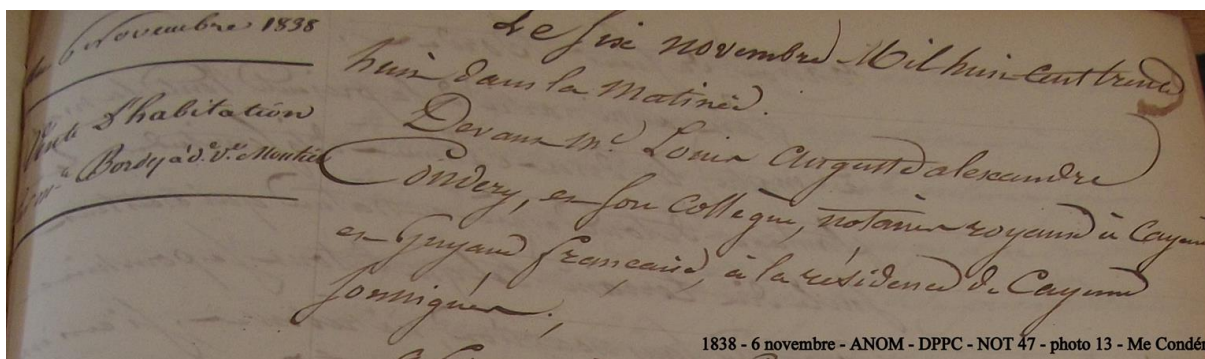 6 Novembre 1838
Vente d'habitation
Bordes à d.e V.e Moutier
Le six novembre Mil huit cent trente
huit dans la matinée.
Devant M.e Louis Auguste alexandre
Condery, et son collègue, notaires royaux à Cayenne
et Guyane française, à la résidence de Cayenne
soussignés;
1838 - 6 novembre - ANOM - DPPC - NOT 47 - photo 13 - Me Condér